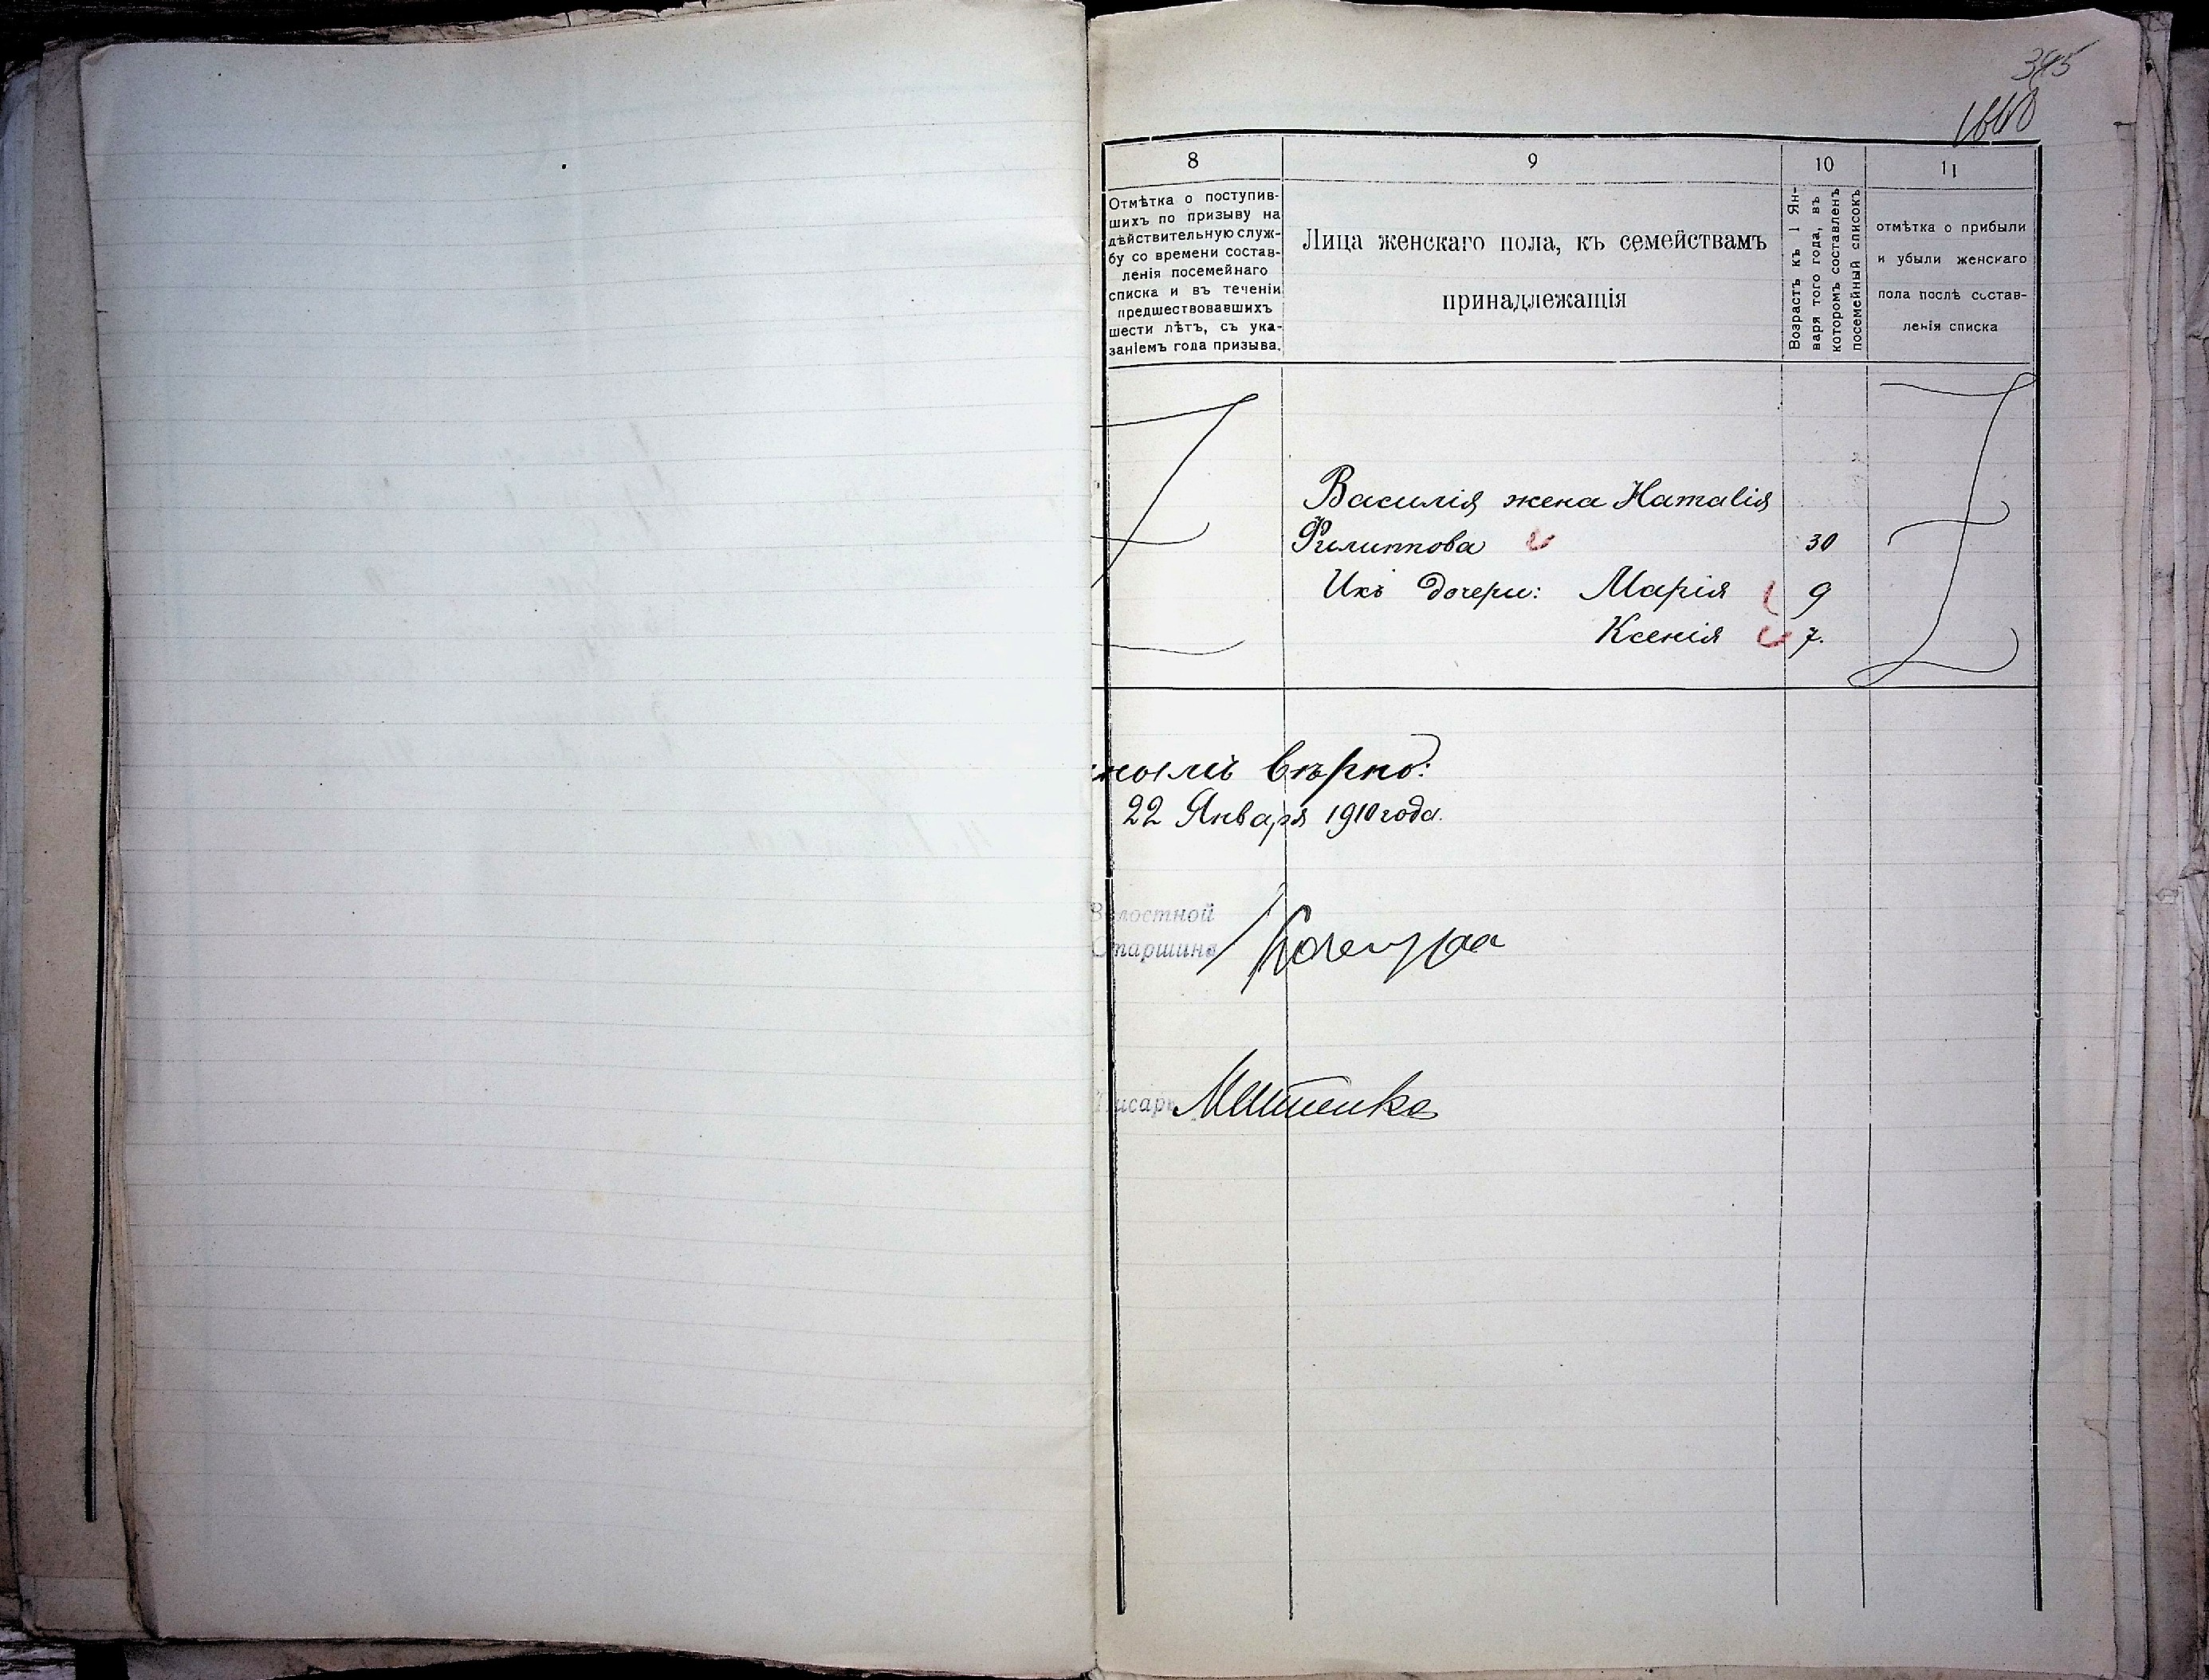 395
8
9
10
11
Отмѣтка о поступив-
шихъ по призыву на
дѣйствительную служ-
бу со времени состав-
ленія посемейнаго
списка и въ теченіи
предшествовавшихъ
шести лѣтъ, съ ука-
заніемъ года призыва.
Лица женскаго пола, къ семействамъ
принадлежащія
Возрастъ къ 1 Ян-
варя того года, въ
которомъ составленъ
посемейный списокъ
отмѣтка о прибыли
и убыли женскаго
пола послѣ состав-
ленія списка
Василія жена Наталія
Филиппова 30
Ихъ дочери: Марія 9
Ксенія 7.
нымъ вѣрно:
22 Января 1910 года.
Волостной
Старшина
Писарь